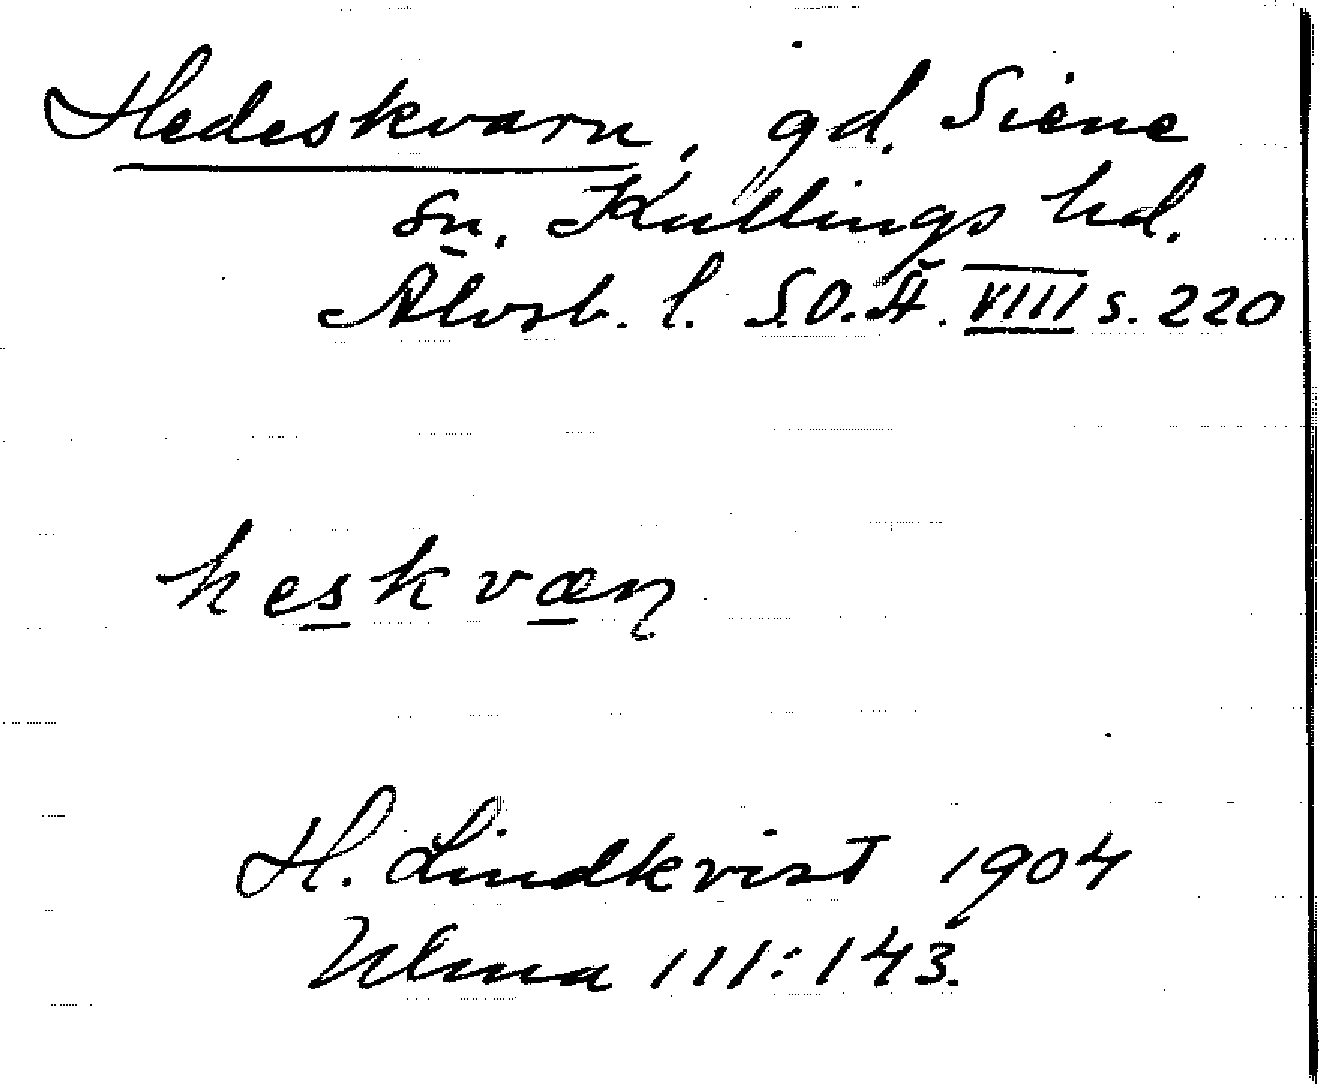 Hedeskvarn, gd. Siene
sn. Kullings hd.
Älvsb. l. S.O.Ä. VIII s. 220
heskvæɳ
H. Lindkvist 1904
Ulma 111:143.